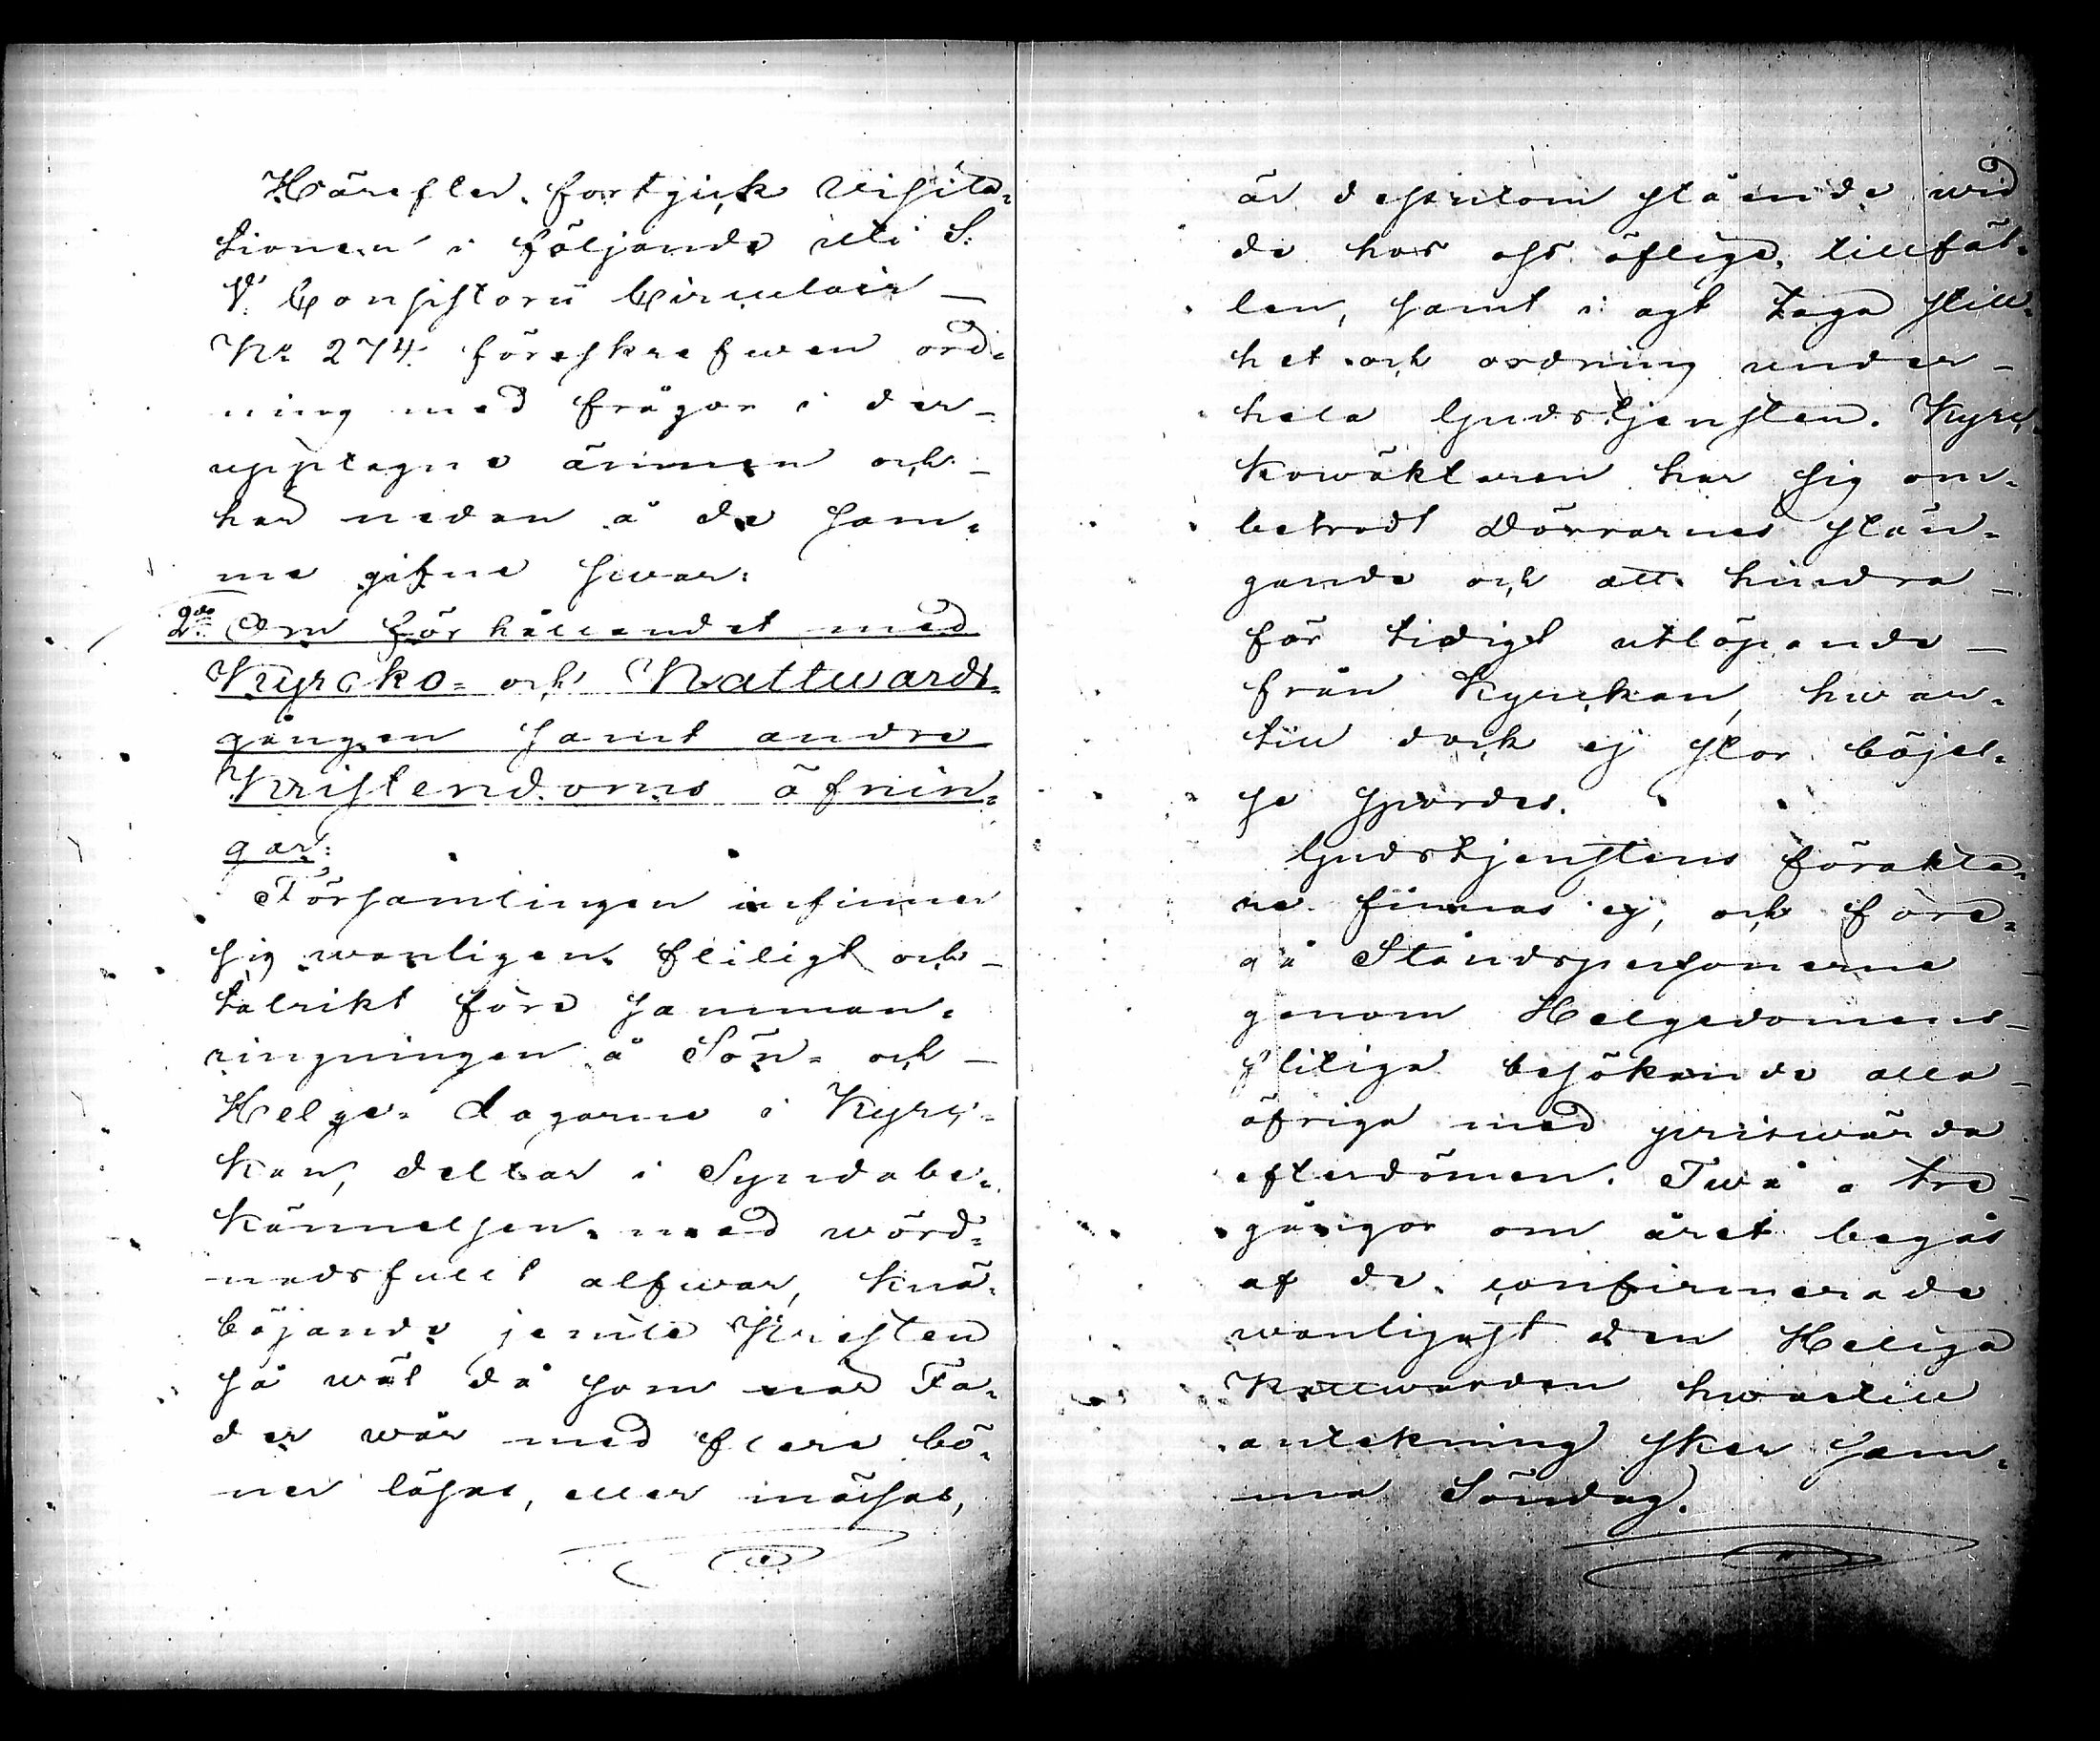 Härefter fortgick Visita-
tionen i följande uti S.
V. Consistorii Circulair –
No 274 föreskrefwen ord-
ning med frågor i der –
upptagne ämnen och –
har nedan å de sam-
me gifne swar:
2do Om förhållandet med
Kyrcko- och Nattwards-
gången samt andre
Kristendoms öfnin-
gar:
Församlingen infinner
sig wanligen flitigt och –
talrikt före samman-
ringningen å Sön- och –
Helge-dagarne i Kyrc-
kan, deltar i Syndabe-
kännelsen med wörd-
nadsfullt alfwar, knä-
böjande jemte Presten
så wäl då som när Fa-
der wår med flere bö-
ner läsas, eller mässas,
är dessutom stående wid
de hos oss öflige tillfäl-
len, samt i agt taga still-
het och ordning under –
hela Gudstjensten. Kyrc-
kowäktaren har sig om-
betrodt Dörrarnes stän-
gande och att hindra –
för tidigt utlöpande –
från Kyrckan, hwar-
till dock ej stor böjel-
se spordes.
Gudstjenstens förakta-
re finnas ej, och före-
gå Ståndspersonerne –
genom Helgedomens –
flitiga besökande alla –
öfriga med priswärda
efterdömen. Twå a tre –
gångor om året begås
af de confirmerade
wanligast den Heliga
Nattwarden hwartill
antekning sker sam-
ma Söndag.